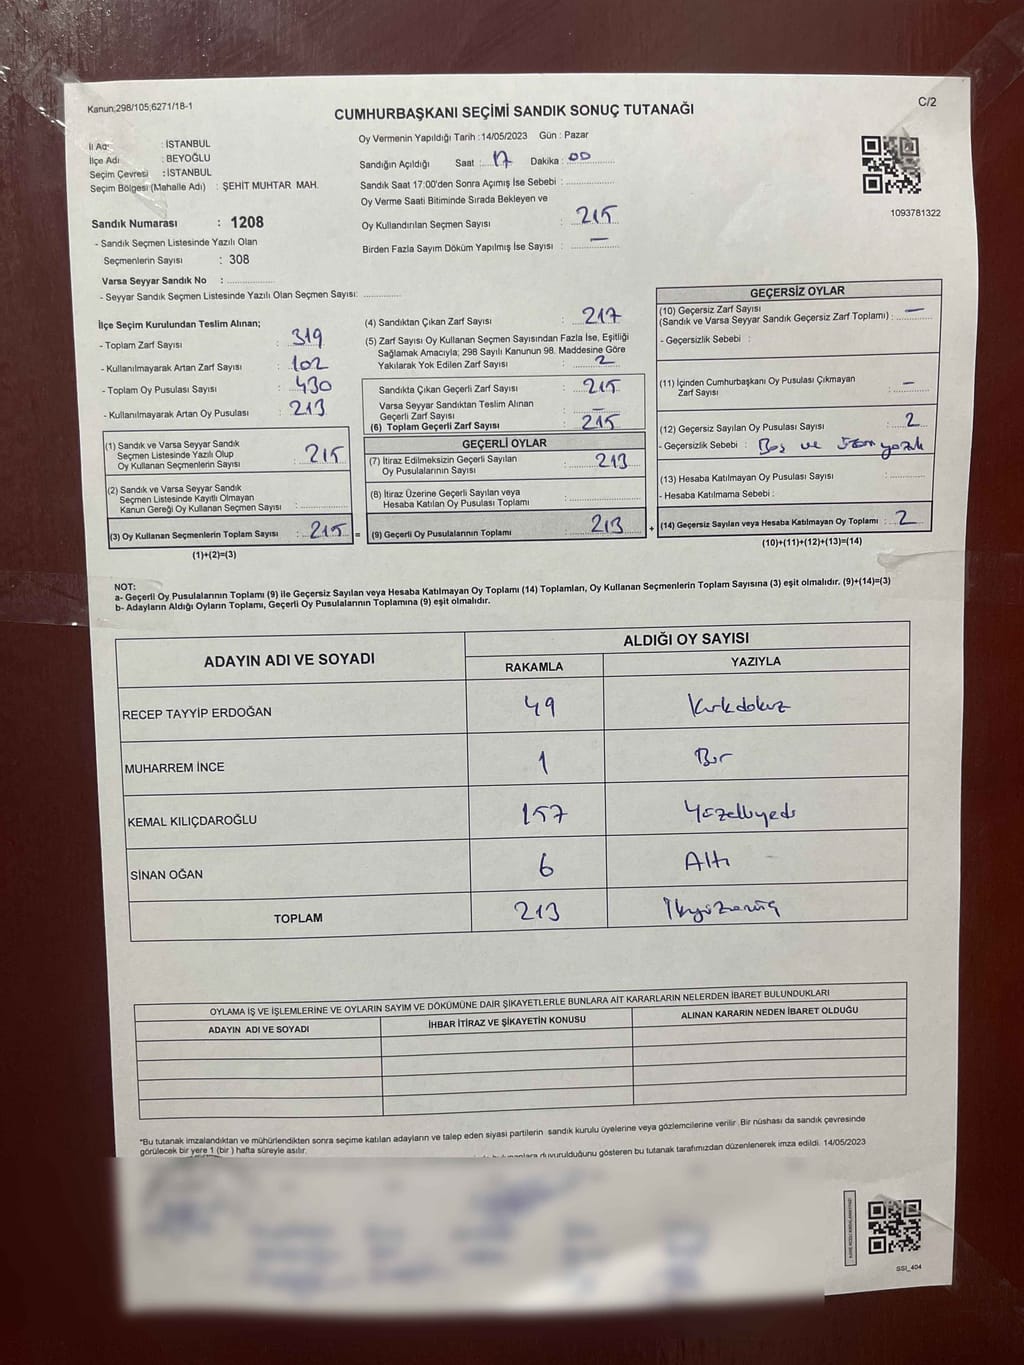 Kanun;298/105;6271/18-1
C/2
CUMHURBAŞKANI SEÇİMİ SANDIK SONUÇ TUTANAĞI
İl Adı : İSTANBUL
İlçe Adı : BEYOĞLU
Seçim Çevresi : İSTANBUL
Seçim Bölgesi (Mahalle Adı) : ŞEHİT MUHTAR MAH.
Sandık Numarası : 1208
- Sandık Seçmen Listesinde Yazılı Olan
Seçmenlerin Sayısı : 308
Varsa Seyyar Sandık No :
- Seyyar Sandık Seçmen Listesinde Yazılı Olan Seçmen Sayısı:
Oy Vermenin Yapıldığı Tarih :14/05/2023 Gün : Pazar
Sandığın Açıldığı Saat : 17 Dakika : 00
Sandık Saat 17:00'den Sonra Açımış İse Sebebi :
Oy Verme Saati Bitiminde Sırada Bekleyen ve
Oy Kullandırılan Seçmen Sayısı : 215
Birden Fazla Sayım Döküm Yapılmış İse Sayısı : —
1093781322
İlçe Seçim Kurulundan Teslim Alınan;
- Toplam Zarf Sayısı : 319
- Kullanılmayarak Artan Zarf Sayısı : 102
- Toplam Oy Pusulası Sayısı : 430
- Kullanılmayarak Artan Oy Pusulası : 213
(1) Sandık ve Varsa Seyyar Sandık
Seçmen Listesinde Yazılı Olup
Oy Kullanan Seçmenlerin Sayısı : 215
(2) Sandık ve Varsa Seyyar Sandık
Seçmen Listesinde Kayıtlı Olmayan
Kanun Gereği Oy Kullanan Seçmen Sayısı :
(3) Oy Kullanan Seçmenlerin Toplam Sayısı : 215 =
(1)+(2)=(3)
(4) Sandıktan Çıkan Zarf Sayısı : 217
(5) Zarf Sayısı Oy Kullanan Seçmen Sayısından Fazla İse, Eşitliği
Sağlamak Amacıyla; 298 Sayılı Kanunun 98. Maddesine Göre
Yakılarak Yok Edilen Zarf Sayısı : 2
Sandıkta Çıkan Geçerli Zarf Sayısı : 215
Varsa Seyyar Sandıktan Teslim Alınan
Geçerli Zarf Sayısı : —
(6) Toplam Geçerli Zarf Sayısı : 215
GEÇERLİ OYLAR
(7) İtiraz Edilmeksizin Geçerli Sayılan
Oy Pusulalarının Sayısı : 213
(8) İtiraz Üzerine Geçerli Sayılan veya
Hesaba Katılan Oy Pusulası Toplamı :
(9) Geçerli Oy Pusulalarının Toplamı : 213 +
GEÇERSİZ OYLAR
(10) Geçersiz Zarf Sayısı
(Sandık ve Varsa Seyyar Sandık Geçersiz Zarf Toplamı) : —
- Geçersizlik Sebebi :
(11) İçinden Cumhurbaşkanı Oy Pusulası Çıkmayan
Zarf Sayısı : —
(12) Geçersiz Sayılan Oy Pusulası Sayısı : 2
- Geçersizlik Sebebi : Boş ve
(13) Hesaba Katılmayan Oy Pusulası Sayısı :
- Hesaba Katılmama Sebebi :
(14) Geçersiz Sayılan veya Hesaba Katılmayan Oy Toplamı : 2
(10)+(11)+(12)+(13)=(14)
NOT:
a- Geçerli Oy Pusulalarının Toplamı (9) ile Geçersiz Sayılan veya Hesaba Katılmayan Oy Toplamı (14) Toplamları, Oy Kullanan Seçmenlerin Toplam Sayısına (3) eşit olmalıdır. (9)+(14)=(3)
b- Adayların Aldığı Oyların Toplamı, Geçerli Oy Pusulalarının Toplamına (9) eşit olmalıdır.
ADAYIN ADI VE SOYADI
ALDIĞI OY SAYISI
RAKAMLA YAZIYLA
RECEP TAYYİP ERDOĞAN 49 Kırkdokuz
MUHARREM İNCE 1 Bir
KEMAL KILIÇDAROĞLU 157 Yüzelliyedi
SİNAN OĞAN 6 Altı
TOPLAM 213 İkiyüzonüç
OYLAMA İŞ VE İŞLEMLERİNE VE OYLARIN SAYIM VE DÖKÜMÜNE DAİR ŞİKAYETLERLE BUNLARA AİT KARARLARIN NELERDEN İBARET BULUNDUKLARI
ADAYIN ADI VE SOYADI İHBAR İTİRAZ VE ŞİKAYETİN KONUSU ALINAN KARARIN NEDEN İBARET OLDUĞU
*Bu tutanak imzalandıktan ve mühürlendikten sonra seçime katılan adayların ve talep eden siyasi partilerin sandık kurulu üyelerine veya gözlemcilerine verilir. Bir nüshası da sandık çevresinde
görülecek bir yere 1 (bir ) hafta süreyle asılır.
duyurulduğunu gösteren bu tutanak tarafımızdan düzenlenerek imza edildi. 14/05/2023
SSI_404